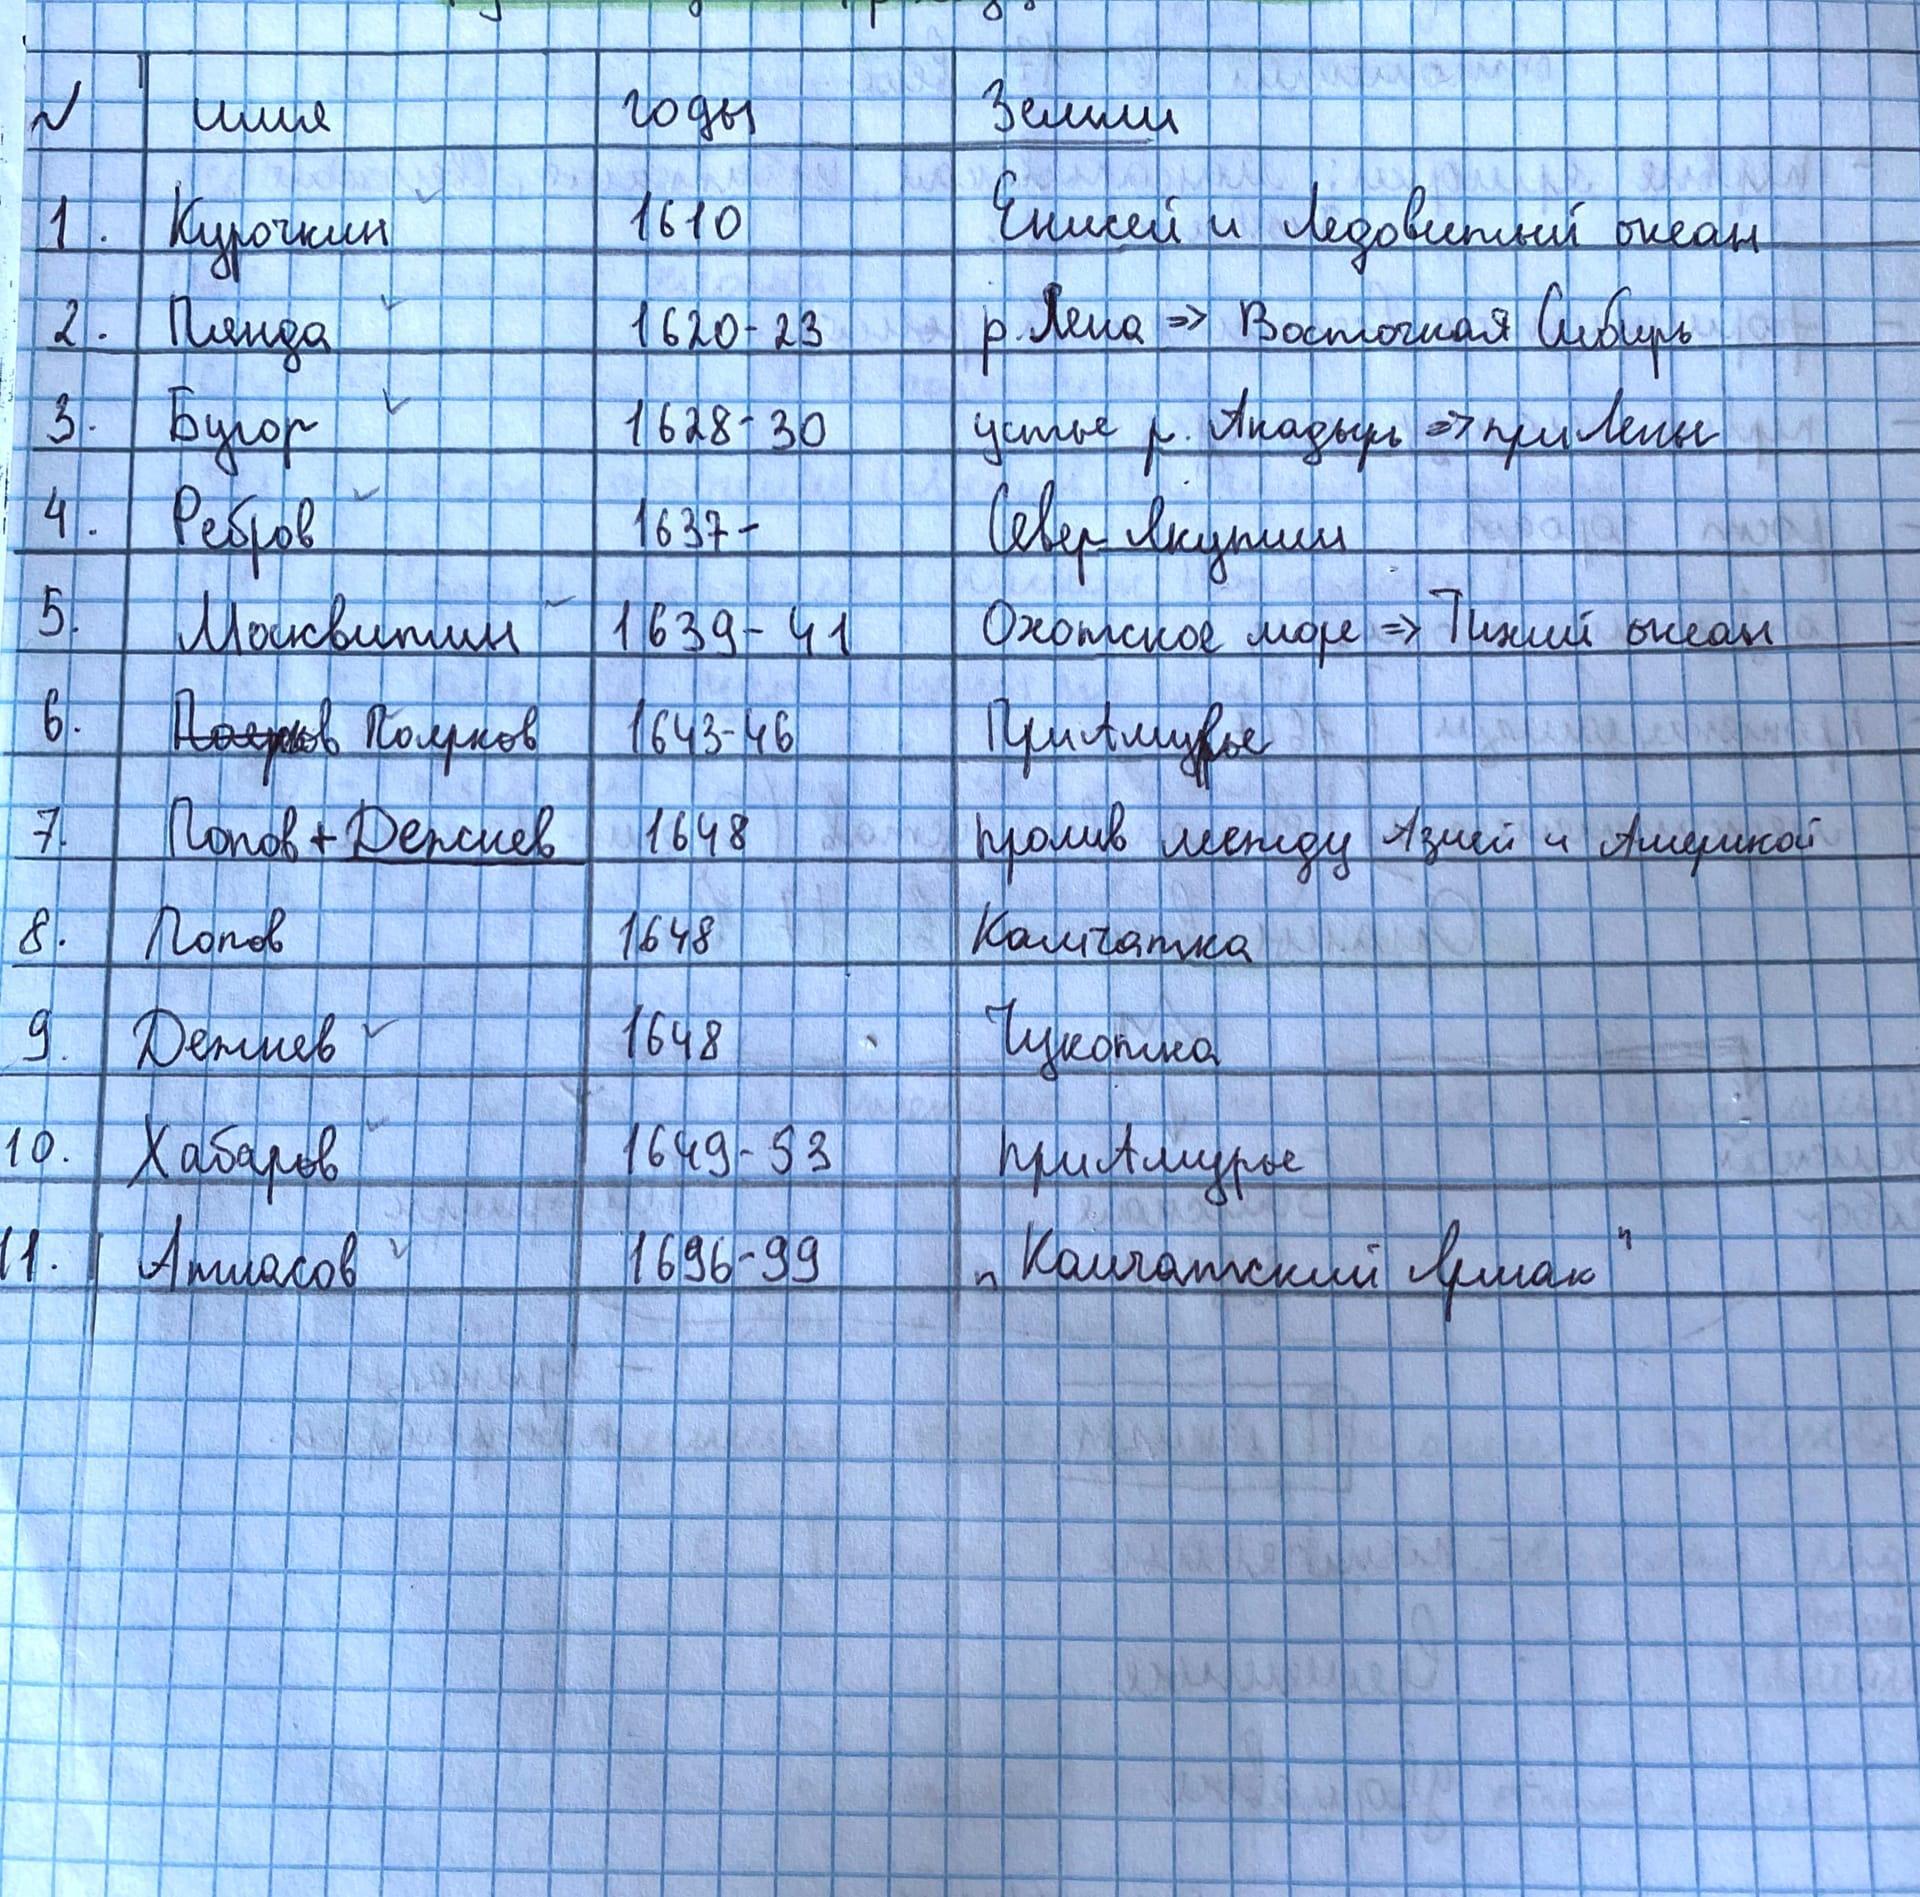 № имя годы Земли
1. Курочкин 1610 Енисей и Ледовитый океан
2. Пянда 1620-23 р. Лена => Восточная Сибирь
3. Бугор 1628-30 устье р. Анадырь => приЛены
4. Ребров 1637- Север Якутии
5. Москвитин 1639-41 Охотское море => Тихий океан
6. Поярков Поярков 1643-46 ПриАмурье
7. Попов + Дежнев 1648 пролив между Азией и Америкой
8. Попов 1648 Камчатка
9. Дежнев 1648 Чукотка
10. Хабаров 1649-53 приАмурье
11. Атласов 1696-99 „Камчатский Ярмак"